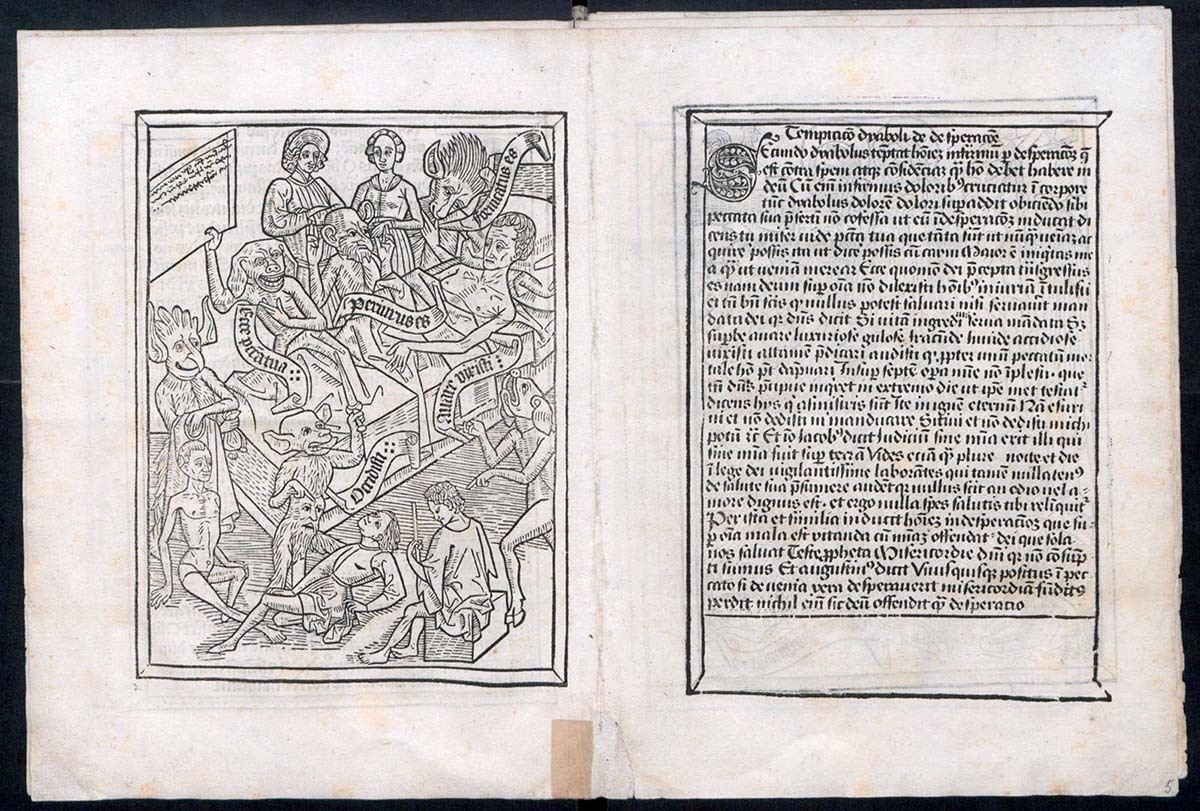 fornicatus es
Periurus es
Ecce pctã tua
Auare vixisti
Occidisti
Temptacio dyaboli de desperacõe
Secundo dyabolus teptat hoiez infirmũ p desperacõez q̃
est contra spem atq̃ cõfidenciaz q̃ hõ debet habere in
deũ Cũ eim infirmus dolorib9 cruciatur ĩ corpore
tũc dyabolus dolorẽ dolori supaddit obiciendo sibi
peccata sua p̃sertim nõ cõfessa ut eũ ĩ desperacõez inducat di
cens tu miser vide pctã tua que tãta sũt ut nũq̃ veniaz ac
quire possis ita ut dice possis cũ caym Maior ẽ iniq̃tas me
a q̃ ut veniã merear Ecce quomõ dei p̃cepta trãsgressus
es nam deum sup oĩa nõ dilexisti hoĩb9 iniuriã ĩtulisti
et tñ bñ scis q nullus potest saluari nisi seruauit man
data dei qr dñs dicit Si vitã ingredi serua mãdata Sz
supbe auare luxuriose gulose iracũde inuide accidiose
vixisti attamen p̃dicari audisti q pter unũ peccatum mo
tale hõ pt dãpnari Insup septẽ opa mĩe nõ ĩplesti que
tñ dñs p̃cipue inq̃ret in extremo die ut ipe met testat
dicens hys q̃ a sinistris sũt Ite in ignẽ eternũ Nã esuri
ui et nõ dedistis m manducare Sitiui et nõ dedistis mich
potũ rc Et iõ Jacob9 dicit Judiciũ sine mĩa erit illi qui
sine mĩa fuit sup terrã Vides eciã q̃ plures nocte et die
ĩ lege dei vigilantissime laborantes qui tamen nullaten9
de salute sua p̃sumere audẽt qr nullus scit an odio uel a-
more dignus est et ergo nulla spes salutis tibi relĩquit
Per ista et similia inducit hoiez in desperacõez que su
p oĩa mala est vitanda cũ mĩaz offendat dei que sola
nos saluat Teste ppheta Misericordie dñi qr nõ cõsũp
ti sumus Et augustin9 dicit Vnusquisq̃ positus ĩ pec
cato si de venia vera desperauerit misericordiã fũdit9
perdit nichil eim sic deũ offendit q̃ desperacio
5